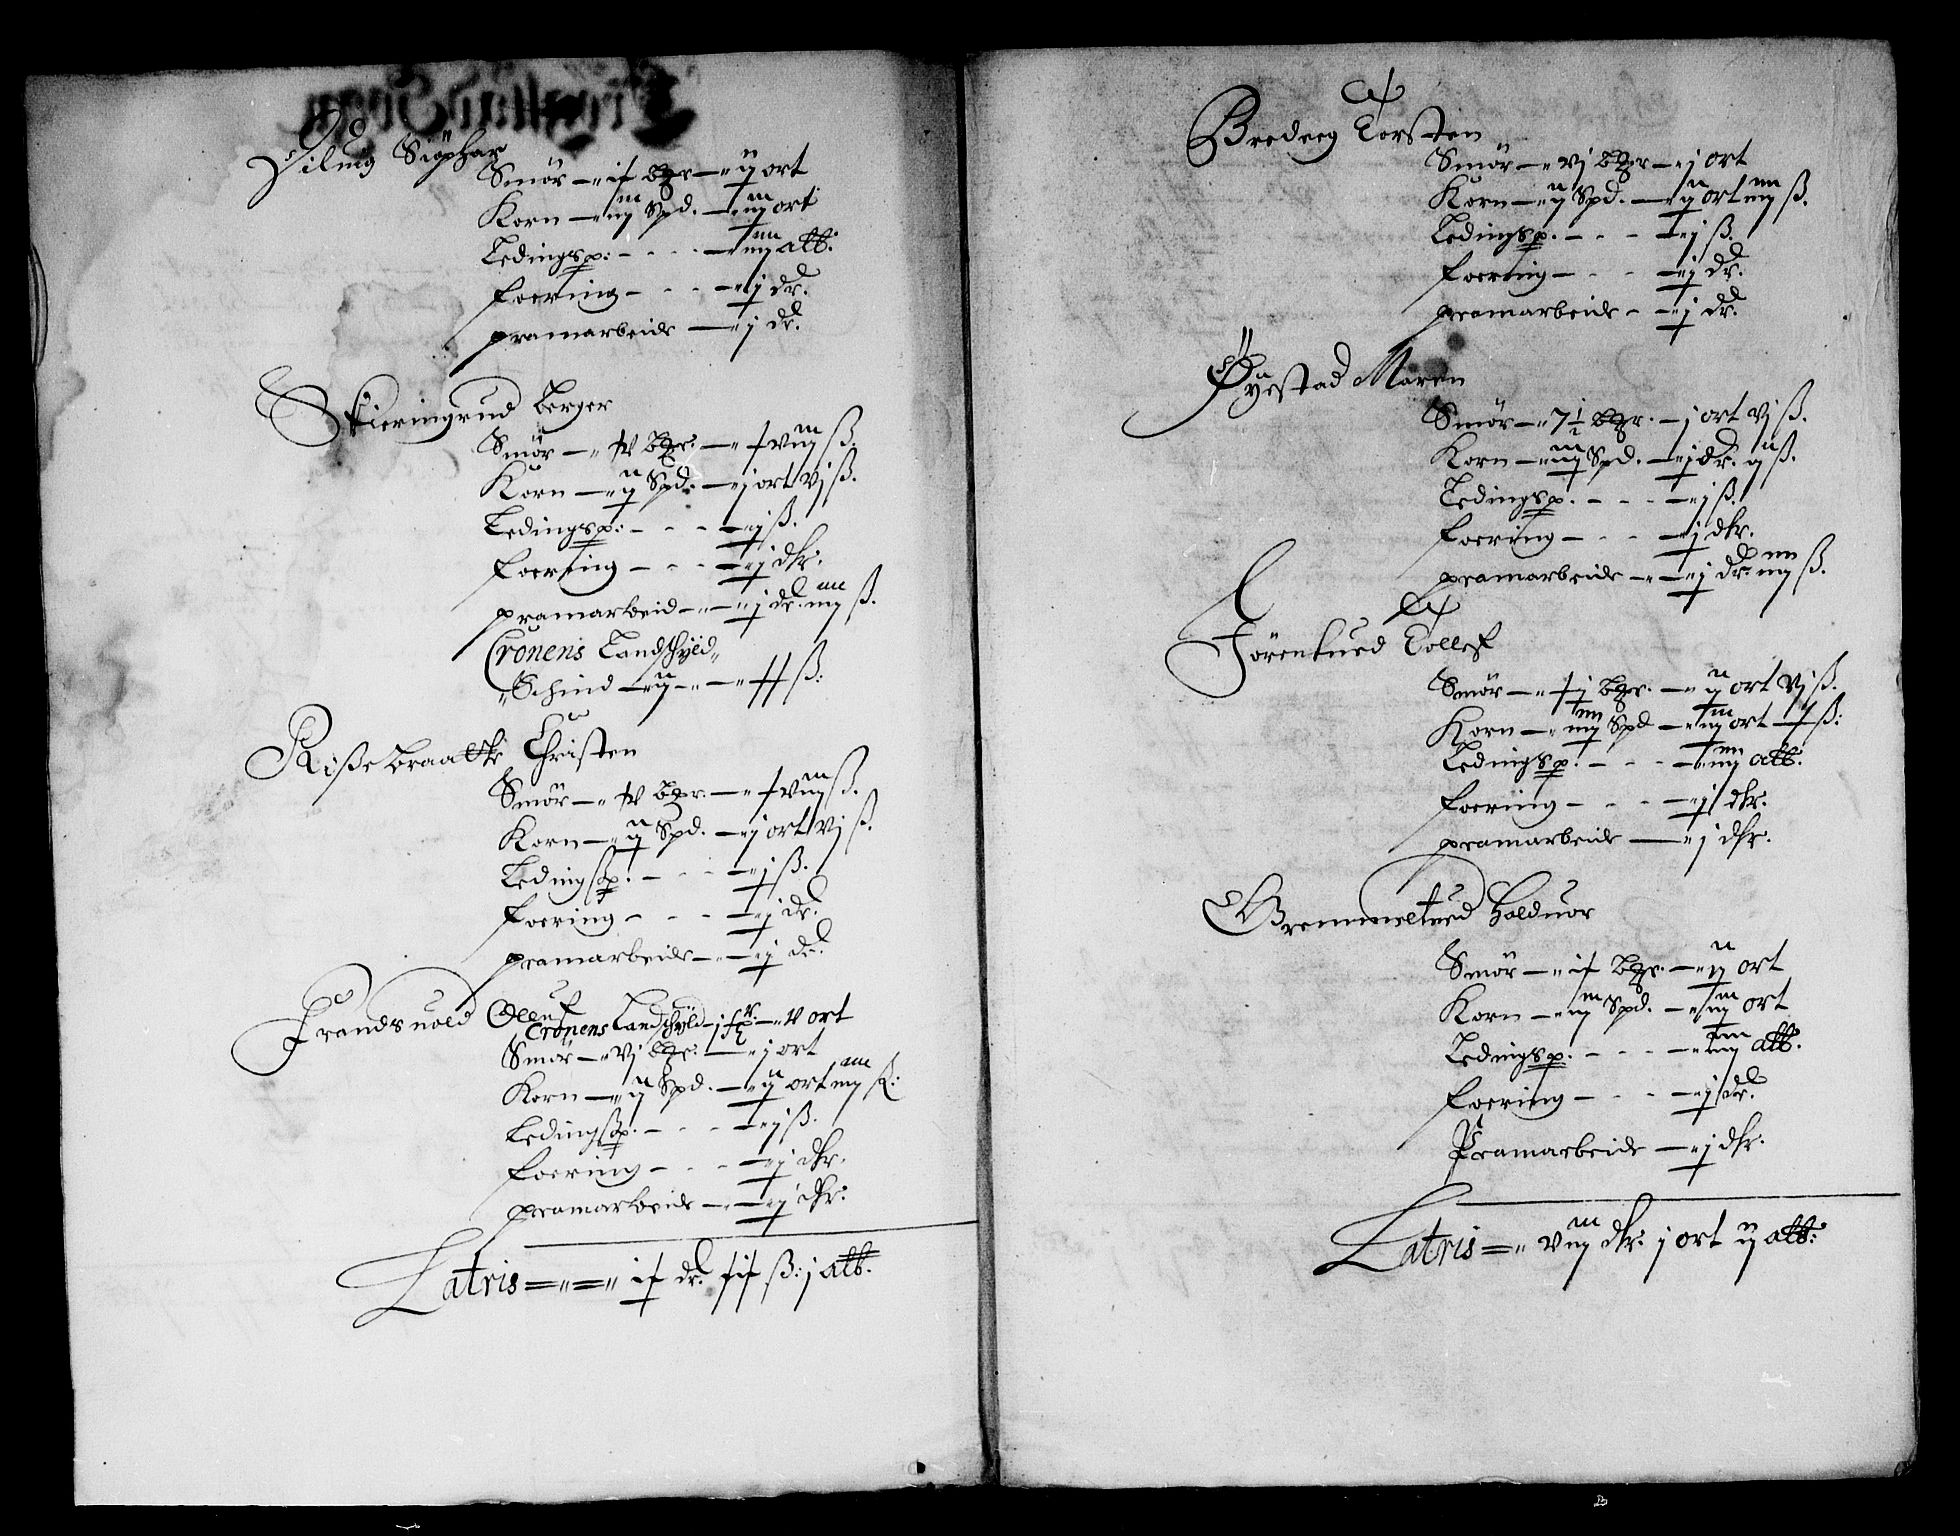 Siøphar
Smør — " ix bzr — " ij ort
Korn — " iij Spd. — " iij ort
Ledingsp: - - - — " iiij alb:
foering — - - — " j dr.
pramarbeide — " j dr.
Skieringrud Berger
Smør — " xv bzr. — " xviij ß.
Korn — " ij Spd. — " j ort vj ß.
Ledingsp: - - - — " j ß.
foering — - - — " j dlr:
pramarbeid — " — " j dr. iiij ß.
Cronens Landschyld "
" Schind — " ij — " — " xx ß:
Rißebraatte Christen
Smør — " xv bzr. — " xviij ß.
Korn — " ij Spd. — " j ort vj ß.
Ledingsp. - - - — " j ß.
foering — - - — " j dr.
pramarbeide — " — " j dr.
Frandsuold Olluf
Cronens Landschyld — j — " v ort
Smør — " vj bzr. — " j ort
Korn — " ij Spd. — " ij ort iiij ß:
Ledingsp. - - - — " j ß.
foering — - - — " j dlr.
pramarbeide — " — " j dlr:
Latris = " = " ix dr. xix ß: j alb.
Bredeeg Torsten
Smør — " vj bzr — " j ort
Korn — " ij Spd. — " ij ort iiij ß.
Ledingsp. - - - — " j ß.
foering — - - — " j dr.
pramarbeide — " j dr.
Øyestad Maren
Smør — " 7 1/2 bzr. — j ort vj ß.
Korn — " iij Spd. — " j dr. ij ß.
Ledingsp. - - - — " j ß.
foering — - - — " j dlr.
pramarbeide — " — " j dr. iiij ß.
Jørentued Tollef
Smør — " xj bzr. — " ij ort vj ß.
Korn — " iiij Spd — " iij ort x ß:
Ledingsp. - - - — " iiij alb:
foering — - - — " j dlr.
pramarbeide — " j dlr.
Gremmeltued Halduor
Smør — " ix bzr. — " ij ort
Korn — " iij Spd. — " iij ort
Ledingsp. - - - — " iiij alb.
foering — - - — " j dr.
Pramarbeide — " j dlr.
Latris = " viij dlr. j ort ij alb: